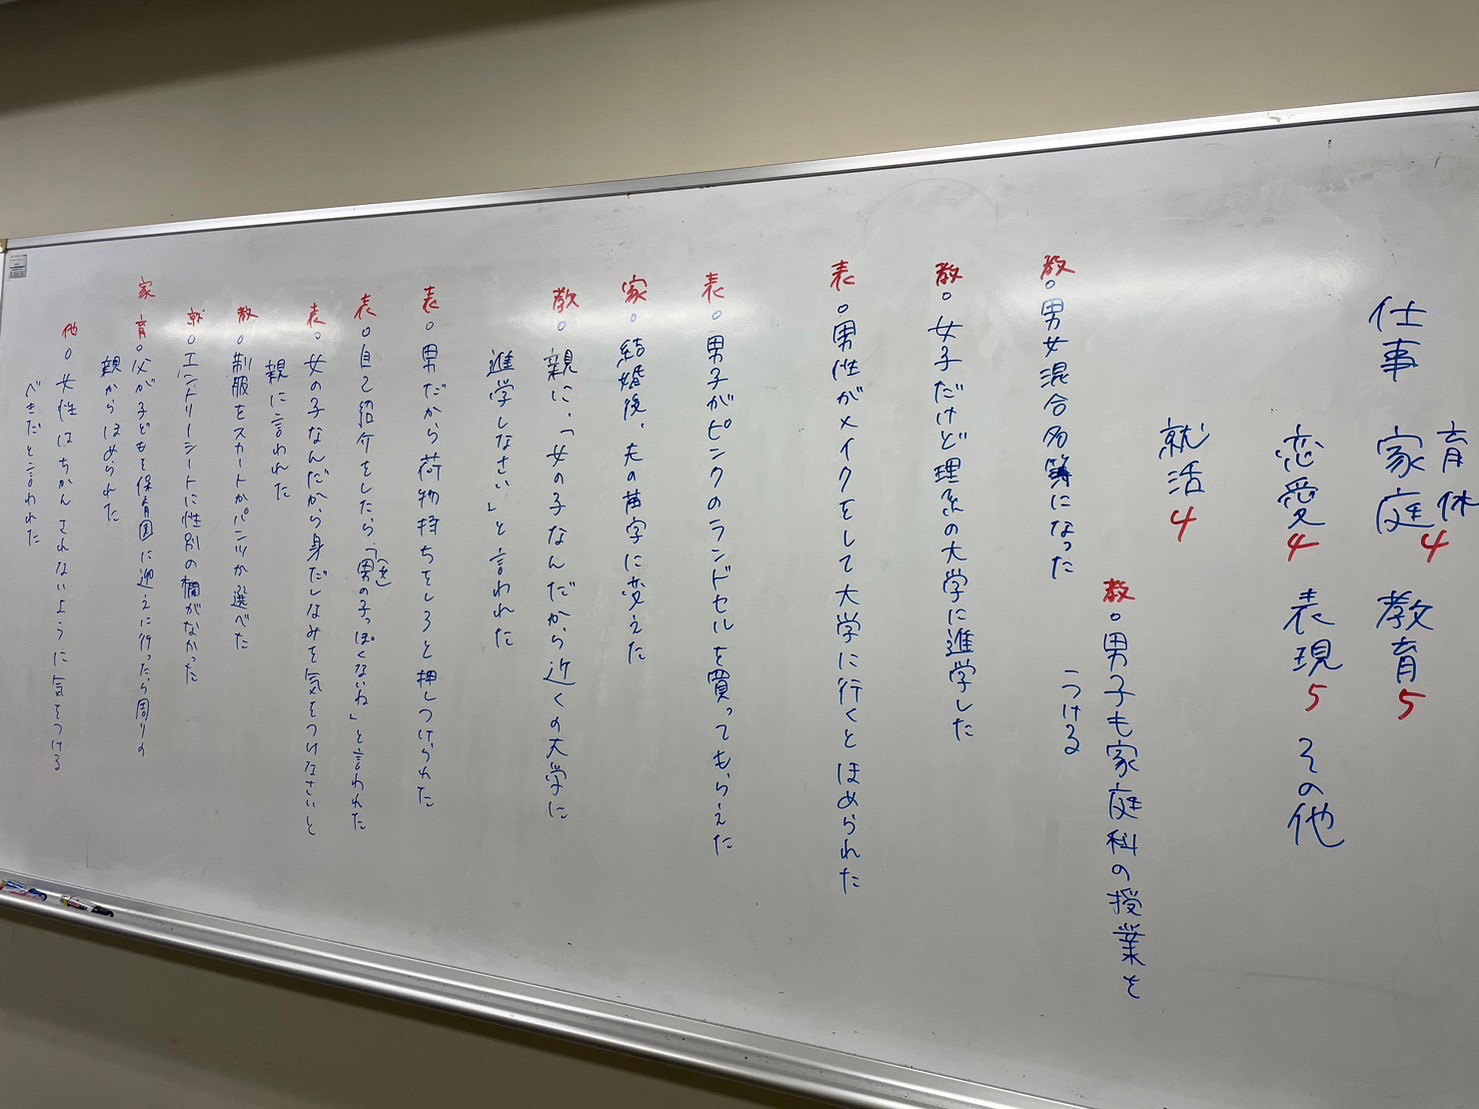 仕事
育休
家庭4
教育5
恋愛4
表現5
その他
就活4
教○男子も家庭科の授業を
うける
教○男女混合名簿になった
教○女子だけど理系の大学に進学した
表○男性がメイクをして大学に行くとほめられた
表○男子がピンクのランドセルを買ってもらえた
家○結婚後、夫の苗字に変えた
教○親に、「女の子なんだから近くの大学に
進学しなさい」と言われた
表○男だから荷物持ちをしろと押しつけられた
表○自己紹介をしたら、「男(女)の子っぽくないね」と言われた
表○女の子なんだから身だしなみを気をつけなさいと
親に言われた
教○制服をスカートかパンツか選べた
就○エントリーシートに性別の欄がなかった
家
育○父が子どもを保育園に迎えに行ったら周りの
親からほめられた
他○女性はちかんされないように気をつける
べきだと言われた